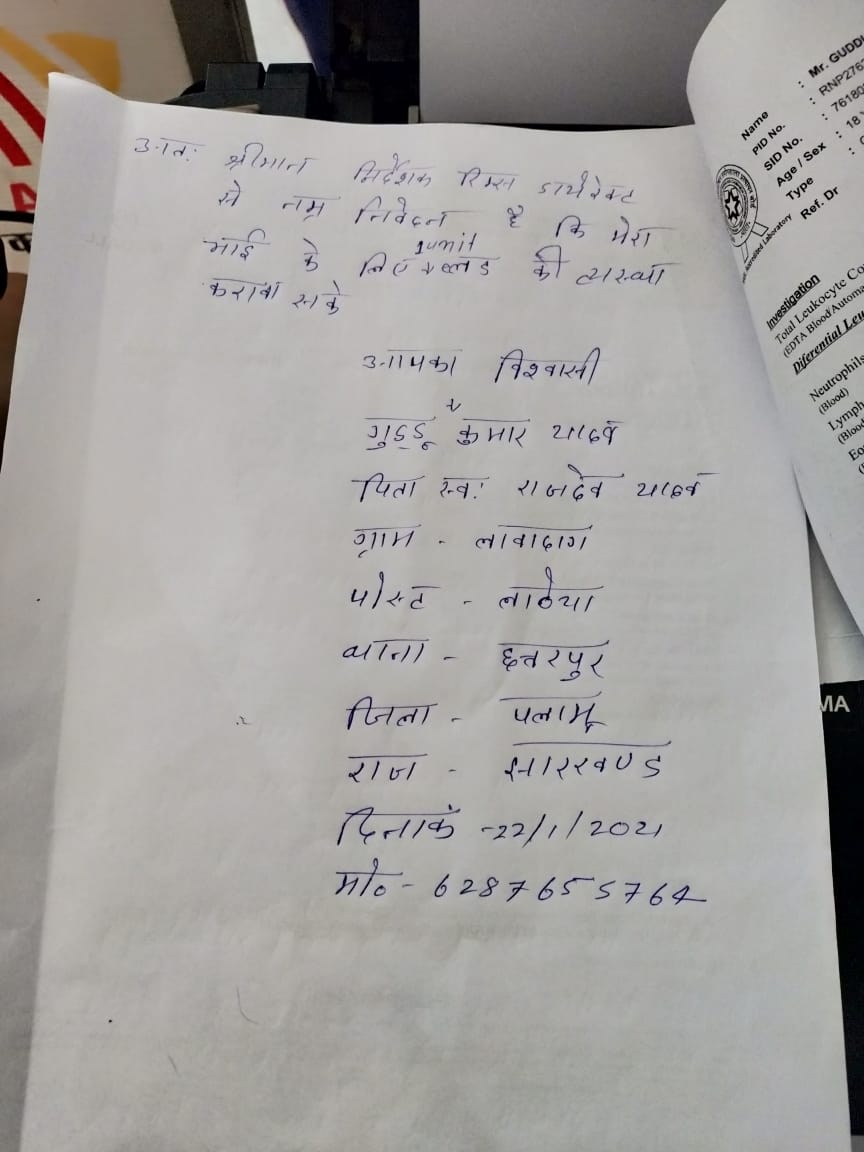 अतः श्रीमान निर्देशक रिम्स डायरेक्ट
से नम्र निवेदन है कि मेरा
भाई के लिए 1unit ब्लड की व्यस्था
करावा सके
आपका विश्वासी
गुड्डू कुमार यादव
पिता स्व: राजदेव यादव
ग्राम - लावादाग
पोस्ट - लाठेया
थाना - छत्तरपुर
जिला - पलामू
राज - झारखण्ड
दिनाकं -22/1/2021
मो० - 6287655764
Name : Mr. GUDD
PID No. : RNP276
SID No. : 7618
Age / Sex : 18
Type :
Ref. Dr
Accredited Laboratory
Investigation
Total Leukocyte Co
(EDTA Blood/Automa
Diferential Leu
Neutrophils
(Blood)
Lymph
(Blood
Eo
MA